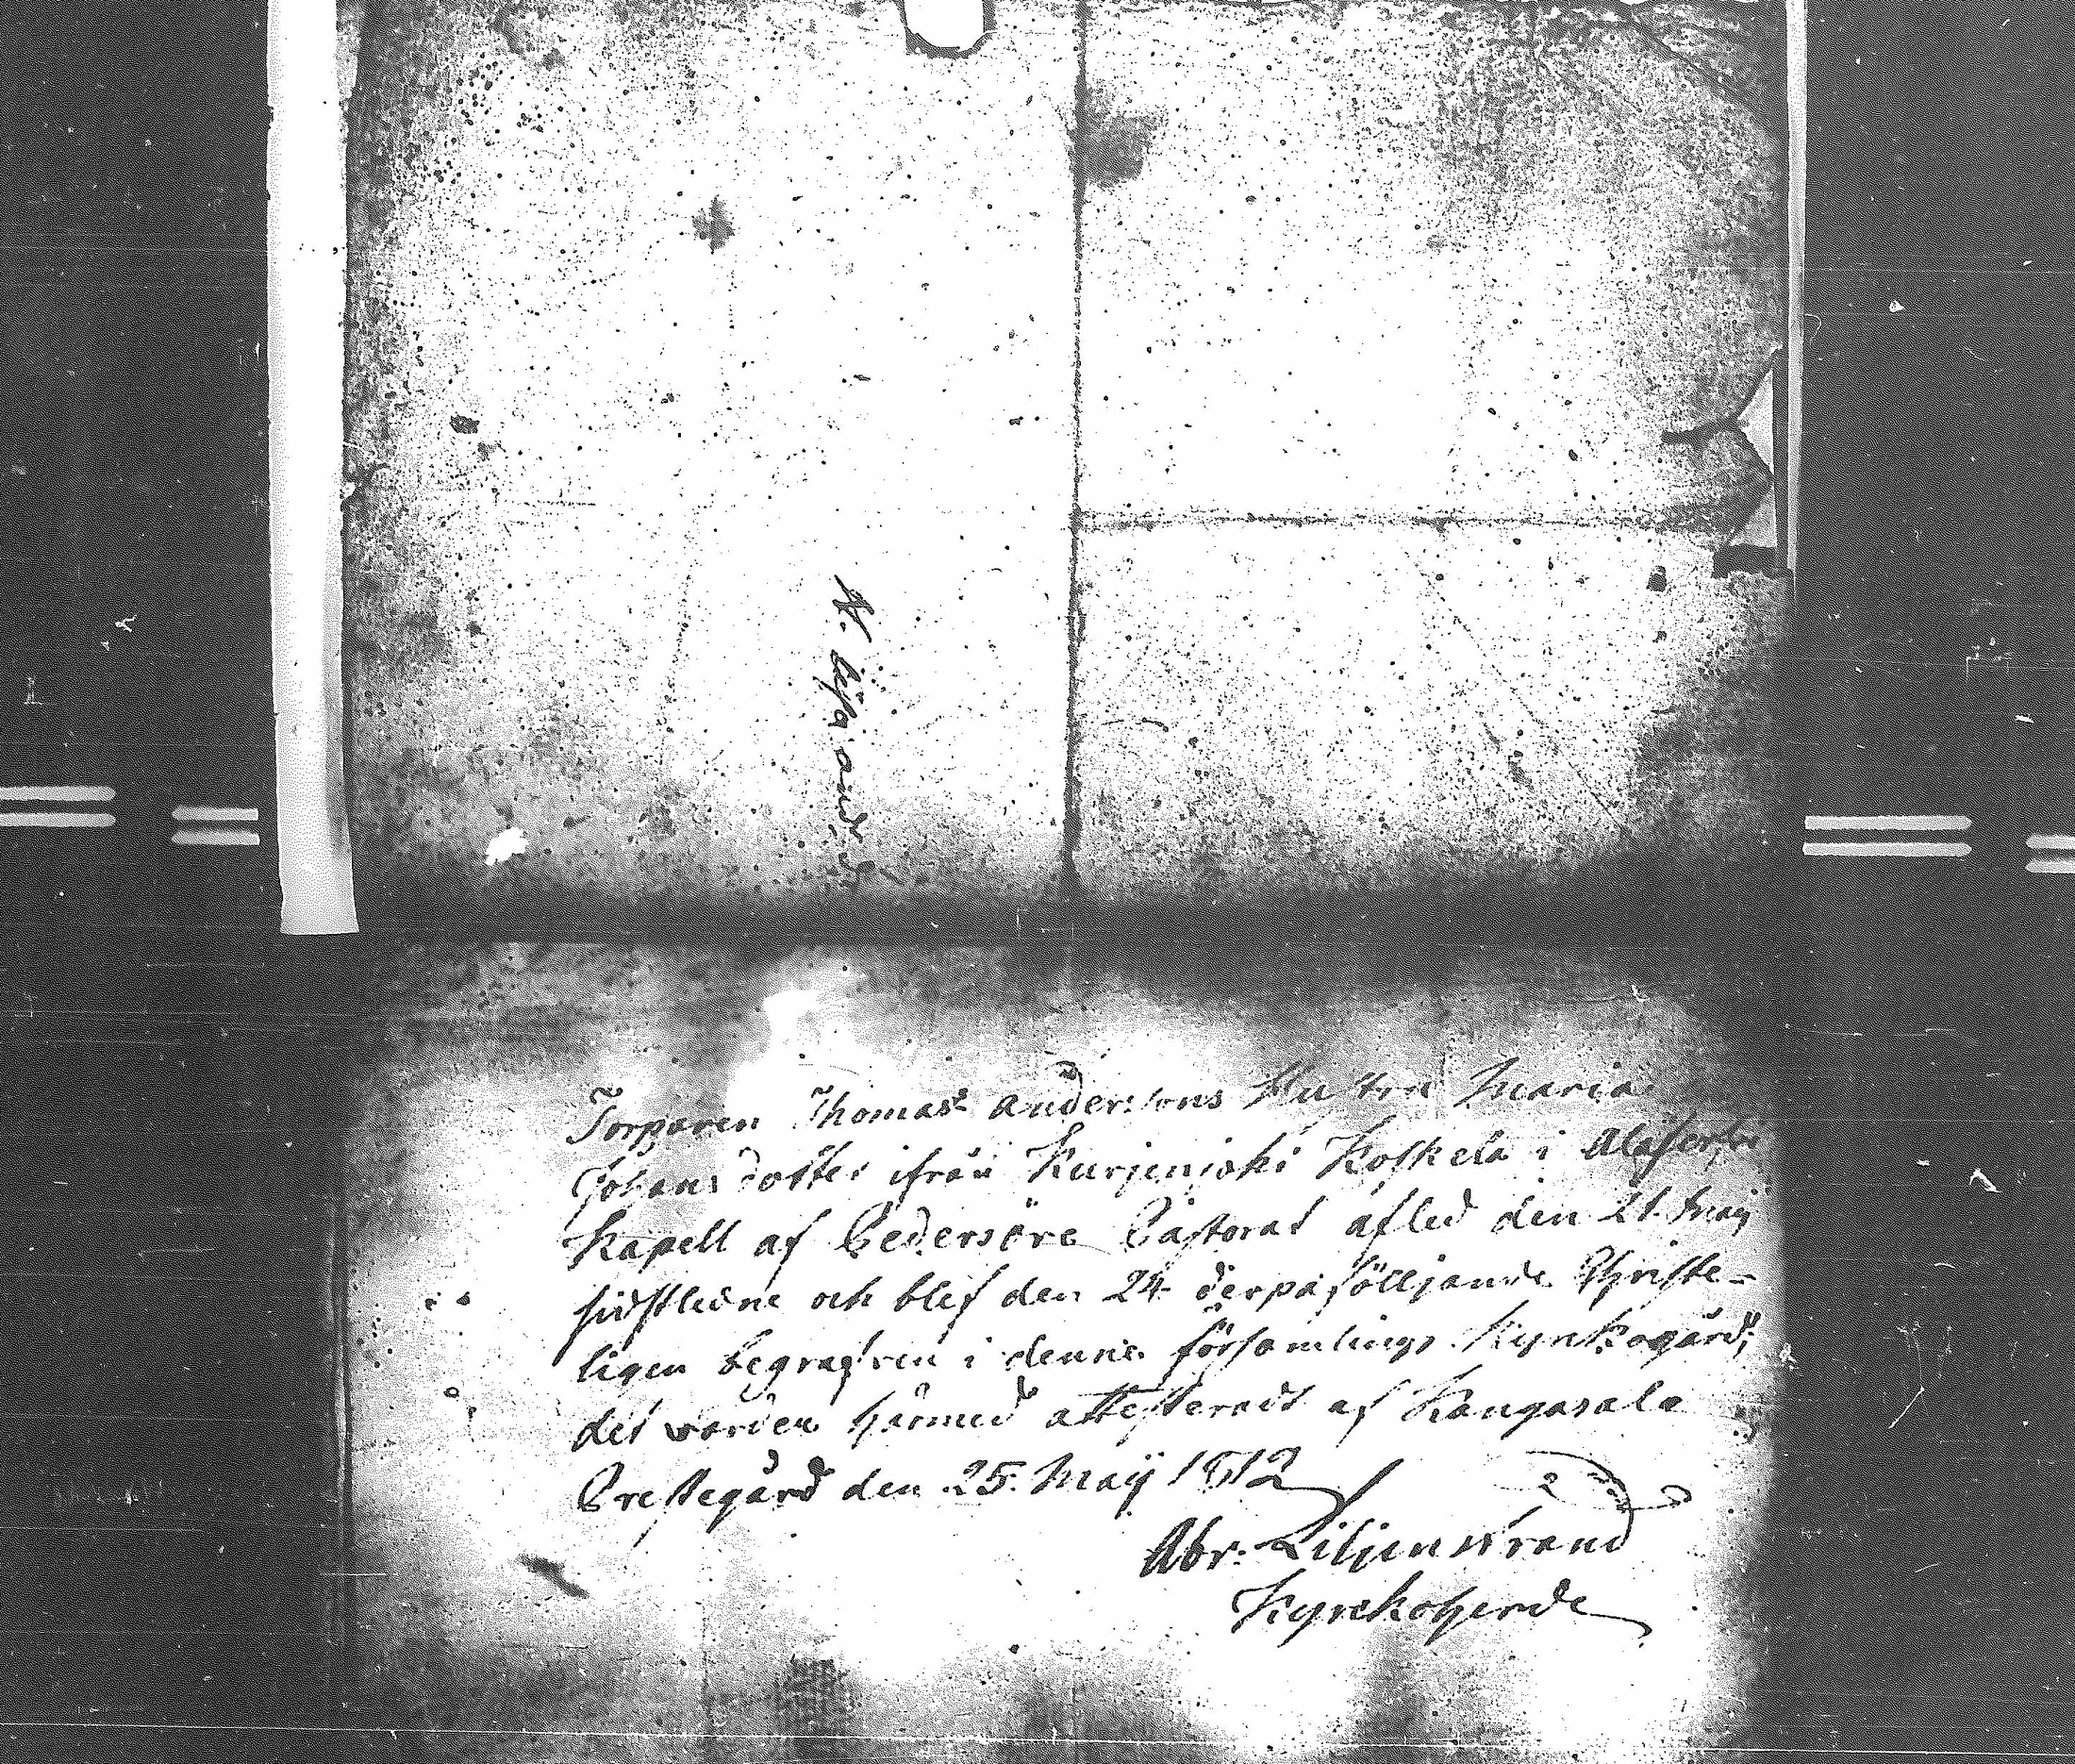 Torparen Thomas Andersons Hustru Maria
Johans dotter ifrån Kurjenjoki Koskela i Alaferfvi
Kapell af Pedersöre Pastorat afled den 21. Maij
sidstledne och blef den 24. derpå följande Christe-
ligen begrafven i denne församlings Kyrkogård;
det varder härmed attesteradt af Kangasala
Prestegård den 25. Maij 1812
Abr: Liljenstrand
Kyrckoherde